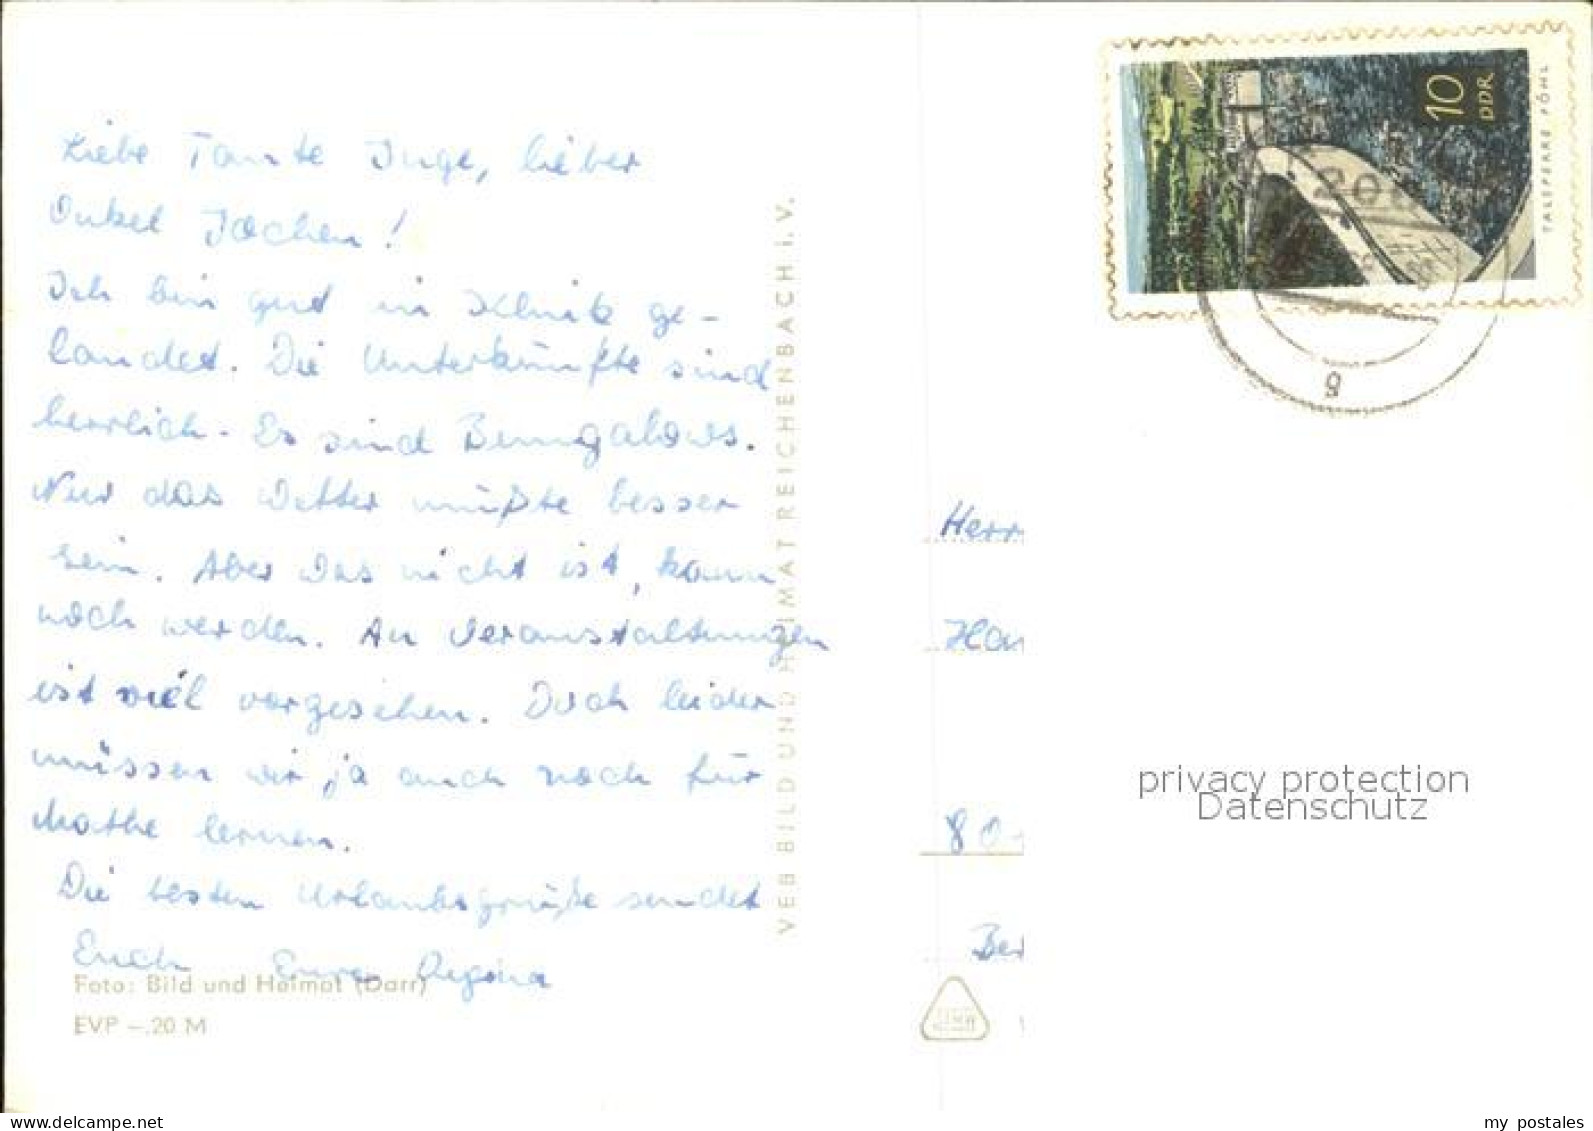 Liebe Tante Inge, lieber
Onkel Jochen!
Ich bin gut in Klink ge-
landet. Die Unterkünfte sind
herrlich. Es sind Bungalows.
Nur das Wetter müßte besser
sein. Aber was nicht ist, kann
noch werden. An Veranstaltungen
ist viel vorgesehen. Doch leider
müssen wir ja auch noch für
Mathe lernen.
Die besten Urlaubsgrüße sendet
Euch Eure Regina
Foto: Bild und Heimat (Darr)
EVP –.20 M
VEB BILD UND HEIMAT REICHENBACH i. V.
10
DDR
TALSPERRE PÖHL
g
Herr
Han
80
Ber
privacy protection
Datenschutz
www.delcampe.net
my_postales